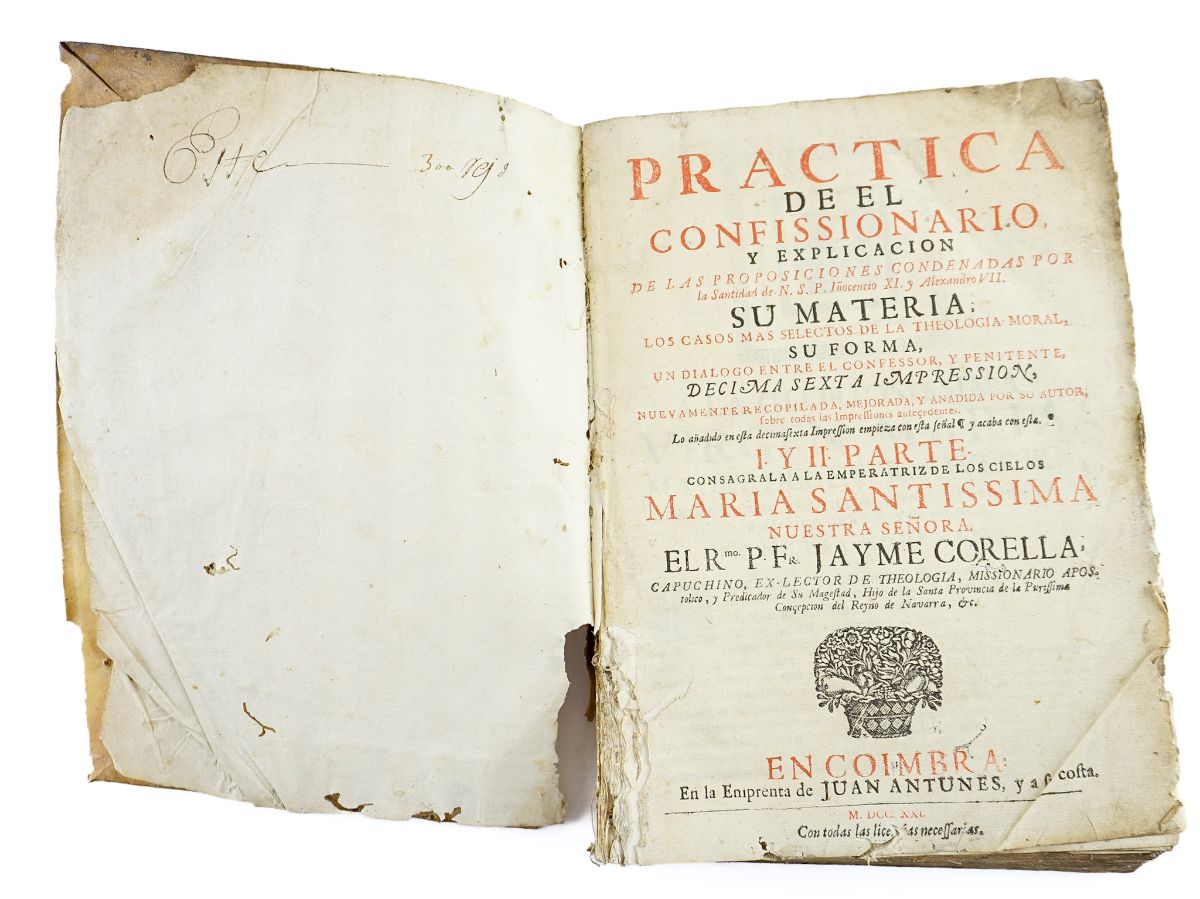 Este 300 rejs
PRACTICA
DE EL
CONFISSIONARIO,
Y EXPLICACION
DE LAS PROPOSICIONES CONDENADAS POR
la Santidad de N. S. P. Inocencio XI. y Alexandro VII.
SU MATERIA;
LOS CASOS MAS SELECTOS DE LA THEOLOGIA MORAL,
SU FORMA,
UN DIALOGO ENTRE EL CONFESSOR, Y PENITENTE,
DECIMA SEXTA IMPRESSION,
NUEVAMENTE RECOPILADA, MEJORADA, Y ANADIDA POR SU AUTOR;
sobre todas las Impressiones antecedentes.
Lo añadido en esta decimasexta Impression empieza con esta señal ¶ y acaba con esta. ¶
I. Y II. PARTE.
CONSAGRALA A LA EMPERATRIZ DE LOS CIELOS
MARIA SANTISSIMA
NUESTRA SEÑORA.
EL Rmo. P. Fr. JAYME CORELLA,
CAPUCHINO, EX-LECTOR DE THEOLOGIA, MISSIONARIO APOS-
tolico, y Predicador de Su Magestad, Hijo de la Santa Provincia de la Purissima
Concepcion del Reyno de Navarra, &c.
EN COIMBRA:
En la Emprenta de JUAN ANTUNES, y a costa.
M. DCC. XXI.
Con todas las licencias necessarias.